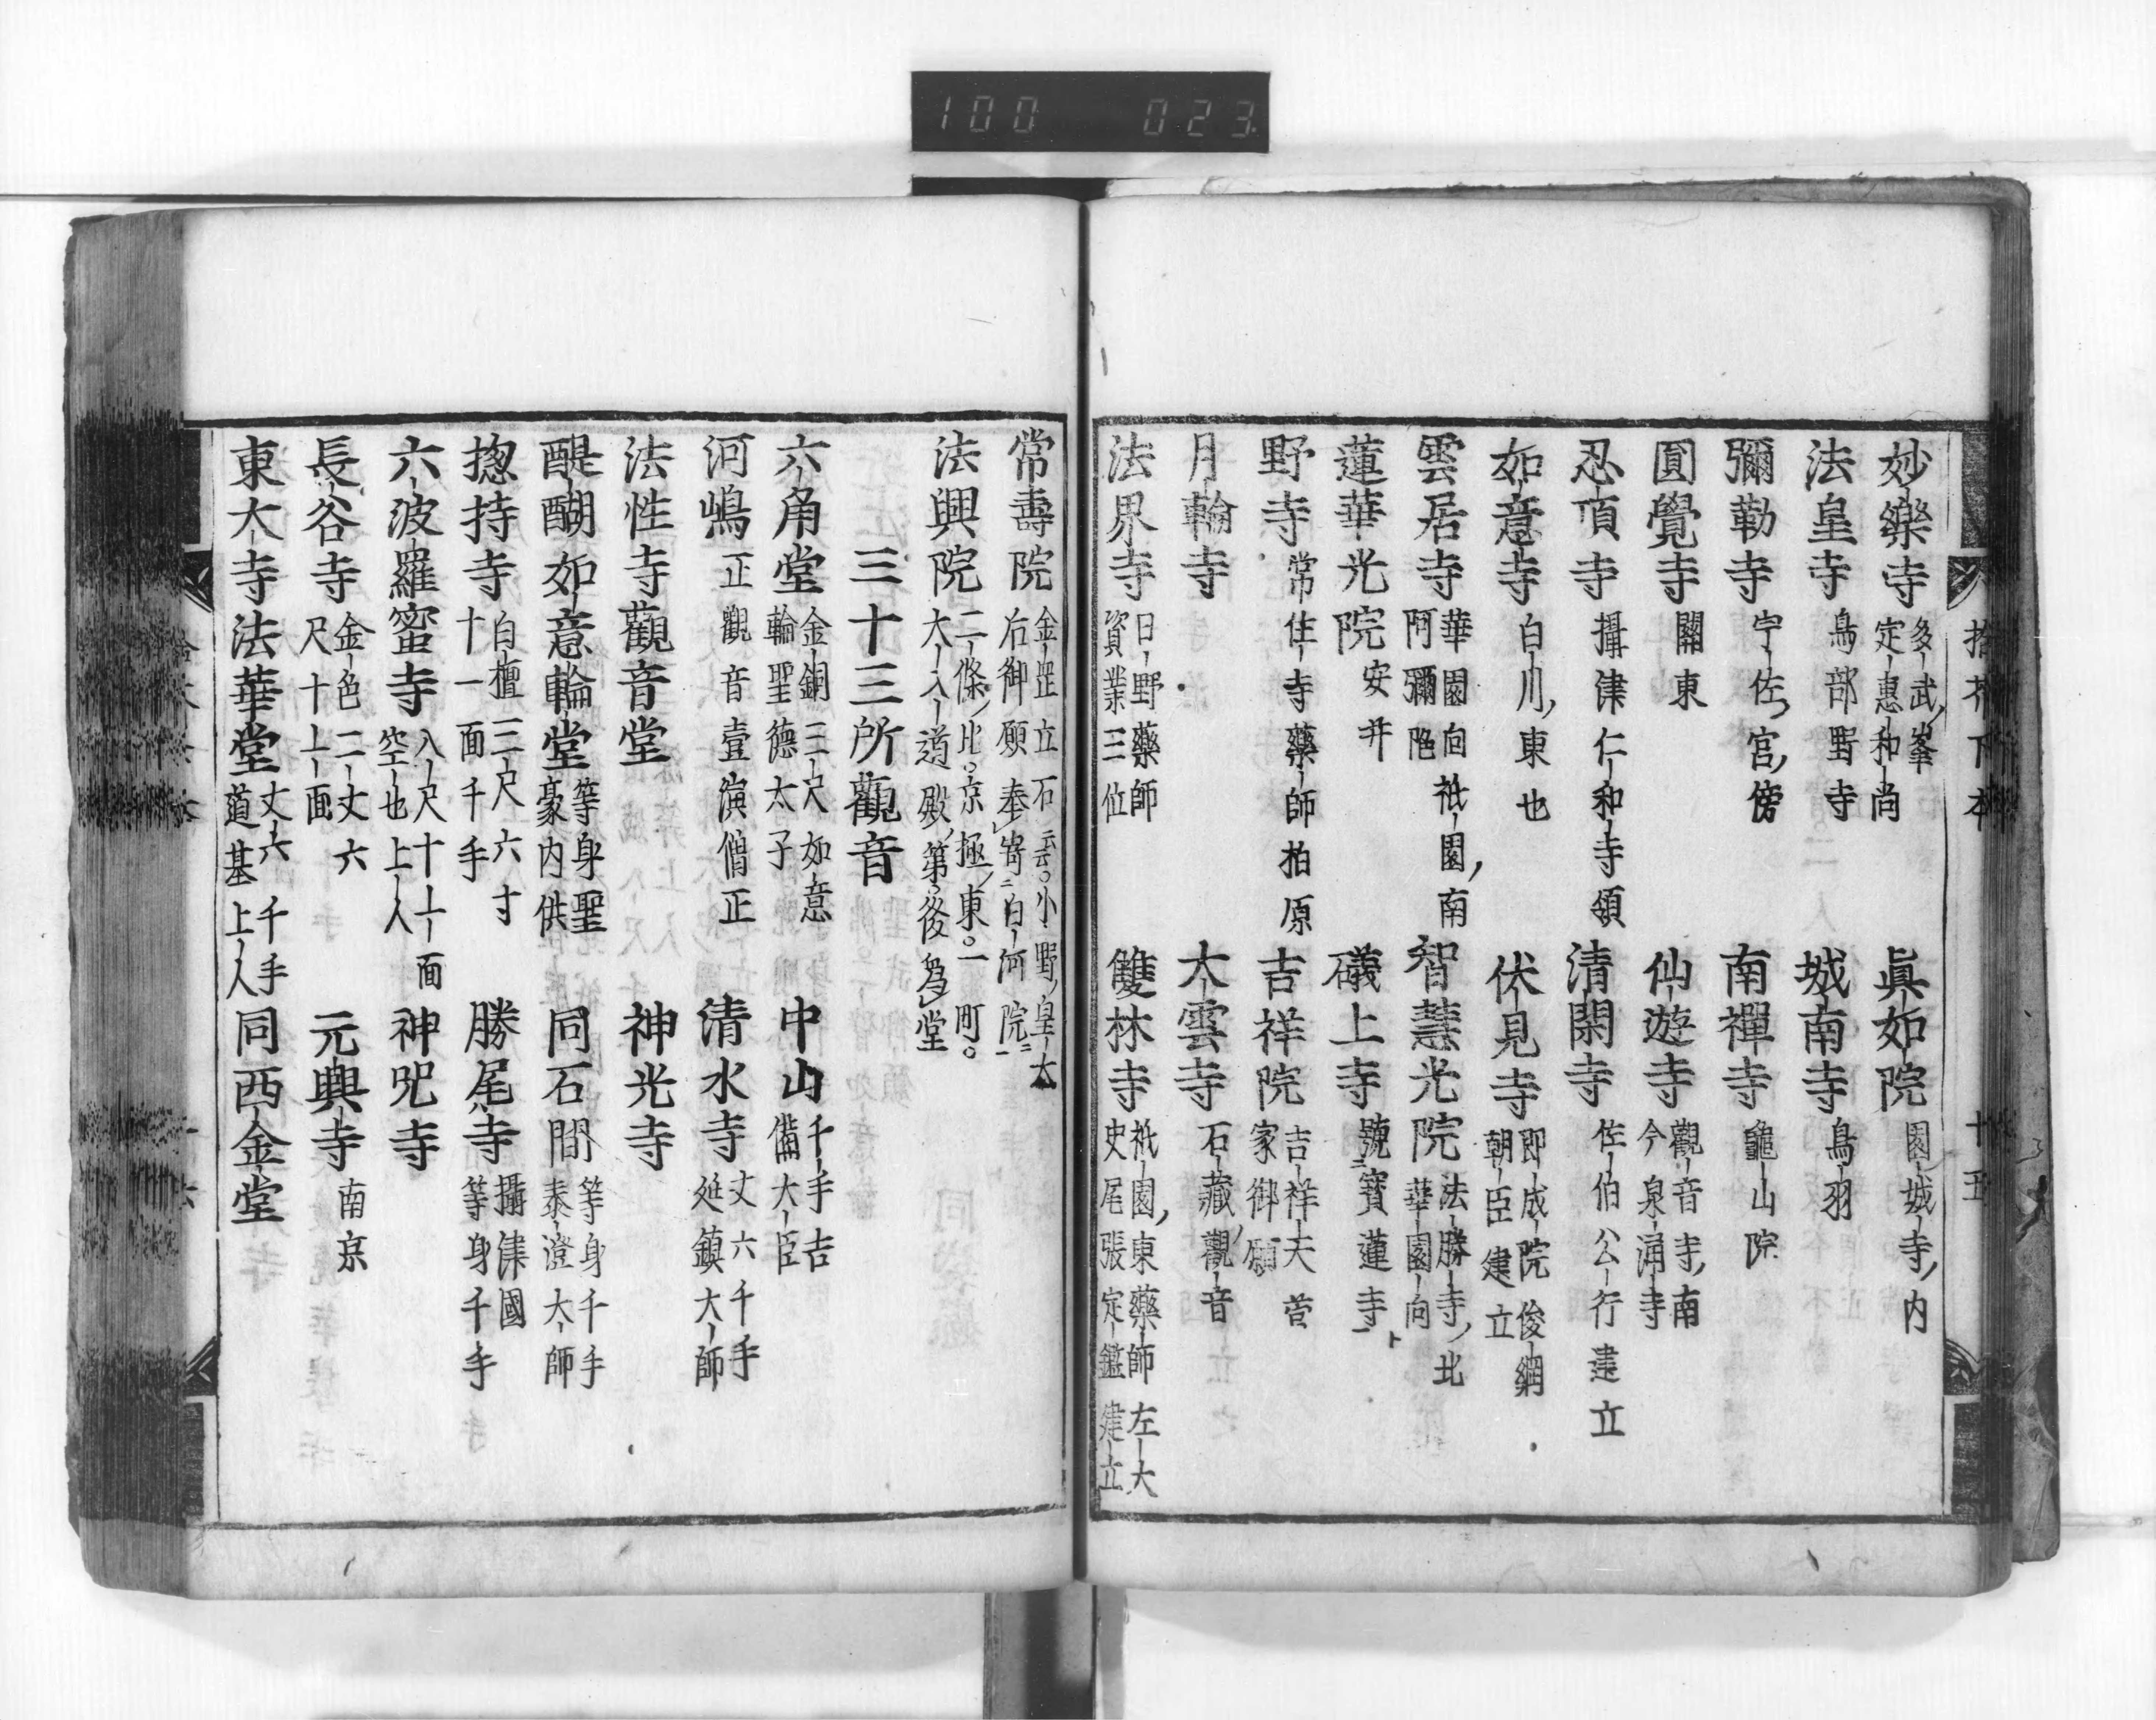 100 023
拾芥下本 十五
妙樂寺 多武ノ峯 定惠和尚 眞如院 園城寺ノ内
法皇寺 鳥部野寺 城南寺 鳥羽
彌勒寺 宇佐ノ宮ノ傍 南禪寺 龜山院
圓覺寺 關東 仙遊寺 觀音寺ノ南 今泉涌寺
忍頂寺 攝津仁和寺領 清閑寺 佐伯公行建立
如意寺 白川ノ東也 伏見寺 即成院俊綱 朝臣建立
雲居寺 華園向祇園ノ南 阿彌陁 智慧光院 法勝寺ノ北 華園向
蓮華光院 安井 礒上寺 號ニ寳蓮寺一ト
野寺 常住寺藥師柏原 吉祥院 吉祥天菅 家御願
月輪寺 大雲寺 石藏ノ觀音
法界寺 日野藥師 資業三位 雙林寺 祇園ノ東藥師左大 史尾張定鑑建立
常壽院 金堂立石云云小野ノ皇太 后御願奉寄ニ白河院ニ一
法興院 二條ノ北京極ノ東一町 大入道殿ノ第後爲堂
三十三所觀音
六角堂 金銅三尺如意 輪聖德太子 中山 千手吉 備大臣
河嶋 正觀音壹演僧正 清水寺 丈六千手 延鎮大師
法性寺觀音堂 神光寺
醍醐如意輪堂 等身聖 豪内供 同石間 等身千手 泰澄大師
揔持寺 白檀三尺六寸 十一面千手 勝尾寺 攝津國 等身千手
六波羅蜜寺 八尺十一面 空也上人 神呪寺
長谷寺 金色二丈六 尺十一面 元興寺 南京
東大寺法華堂 丈六千手 道基上人 同西金堂